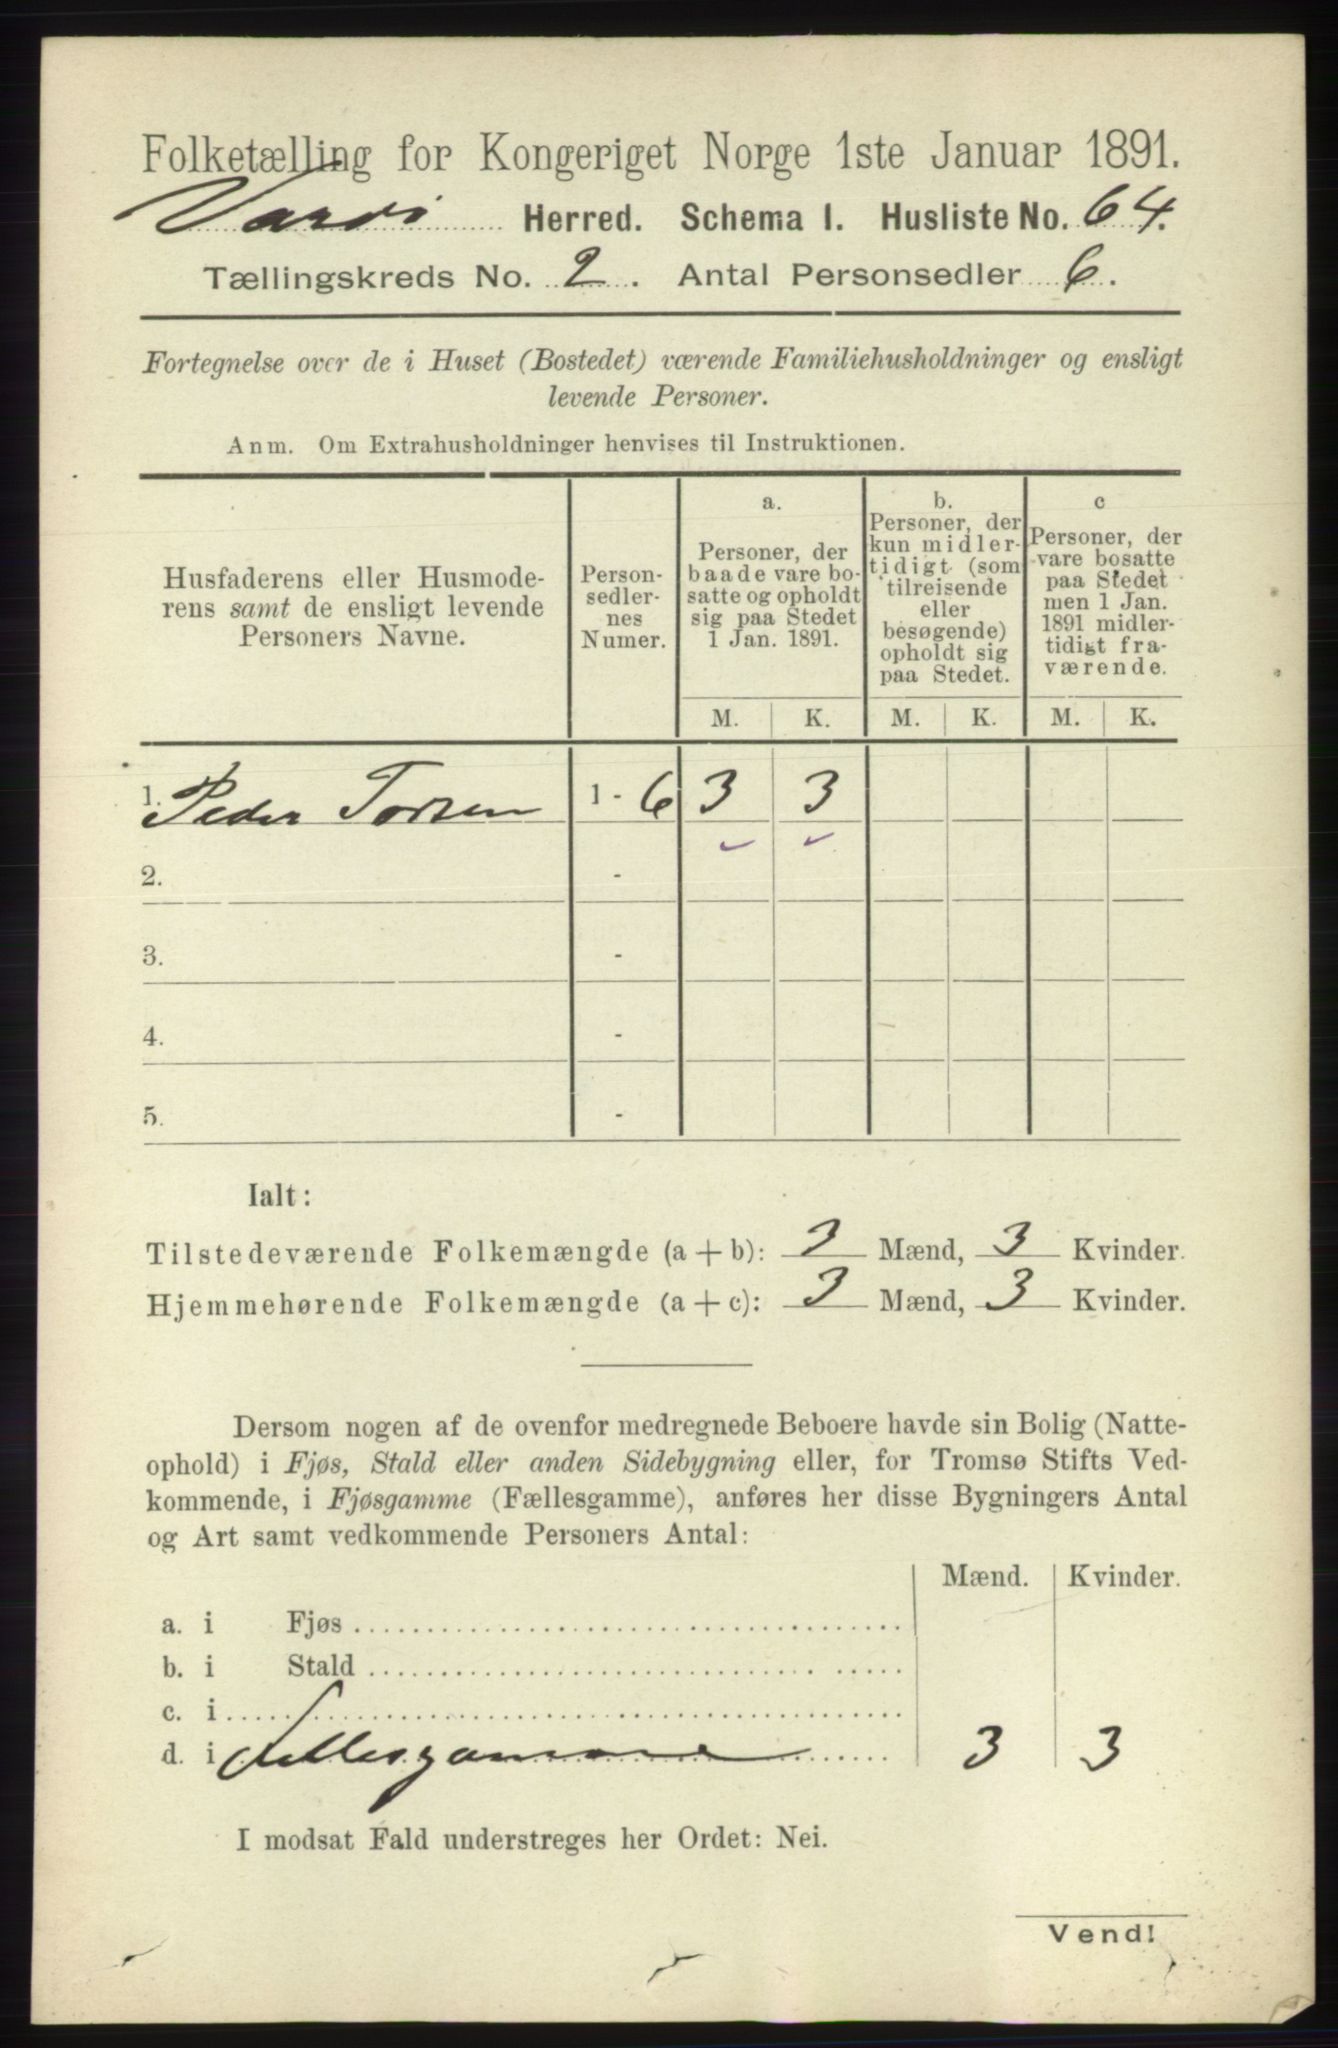 Folketælling for Kongeriget Norge 1ste Januar 1891.
Herred. Schema I. Husliste No. 64.
Tællingskreds No. 2. Antal Personsedler 6.
Fortegnelse over de i Huset (Bostedet) værende Familiehusholdninger og ensligt
levende Personer.
Anm. Om Extrahusholdninger henvises til Instruktionen.
Husfaderens eller Husmode-
rens samt de ensligt levende
Personers Navne.
Person-
sedler-
nes
Numer.
a.
Personer, der
baade vare bo-
satte og opholdt
sig paa Stedet
1 Jan. 1891.
b.
Personer, der
kun midler-
tidigt (som
tilreisende
eller
besøgende)
opholdt sig
paa Stedet.
c
Personer, der
vare bosatte
paa Stedet
men 1 Jan.
1891 midler-
tidigt fra-
værende.
M. K. M. K. M. K.
1. Peder Torsen 1 - 6 3 3
2. -
3. -
4. -
5. -
Ialt:
Tilstedeværende Folkemængde (a + b): 3 Mænd, 3 Kvinder.
Hjemmehørende Folkemængde (a + c): 3 Mænd, 3 Kvinder.
Dersom nogen af de ovenfor medregnede Beboere havde sin Bolig (Natte-
ophold) i Fjøs, Stald eller anden Sidebygning eller, for Tromsø Stifts Ved-
kommende, i Fjøsgamme (Fællesgamme), anføres her disse Bygningers Antal
og Art samt vedkommende Personers Antal:
Mænd. Kvinder.
a. i Fjøs
b. i Stald
c. i
d. i Fellesgamme 3 3
I modsat Fald understreges her Ordet: Nei.
Vend!